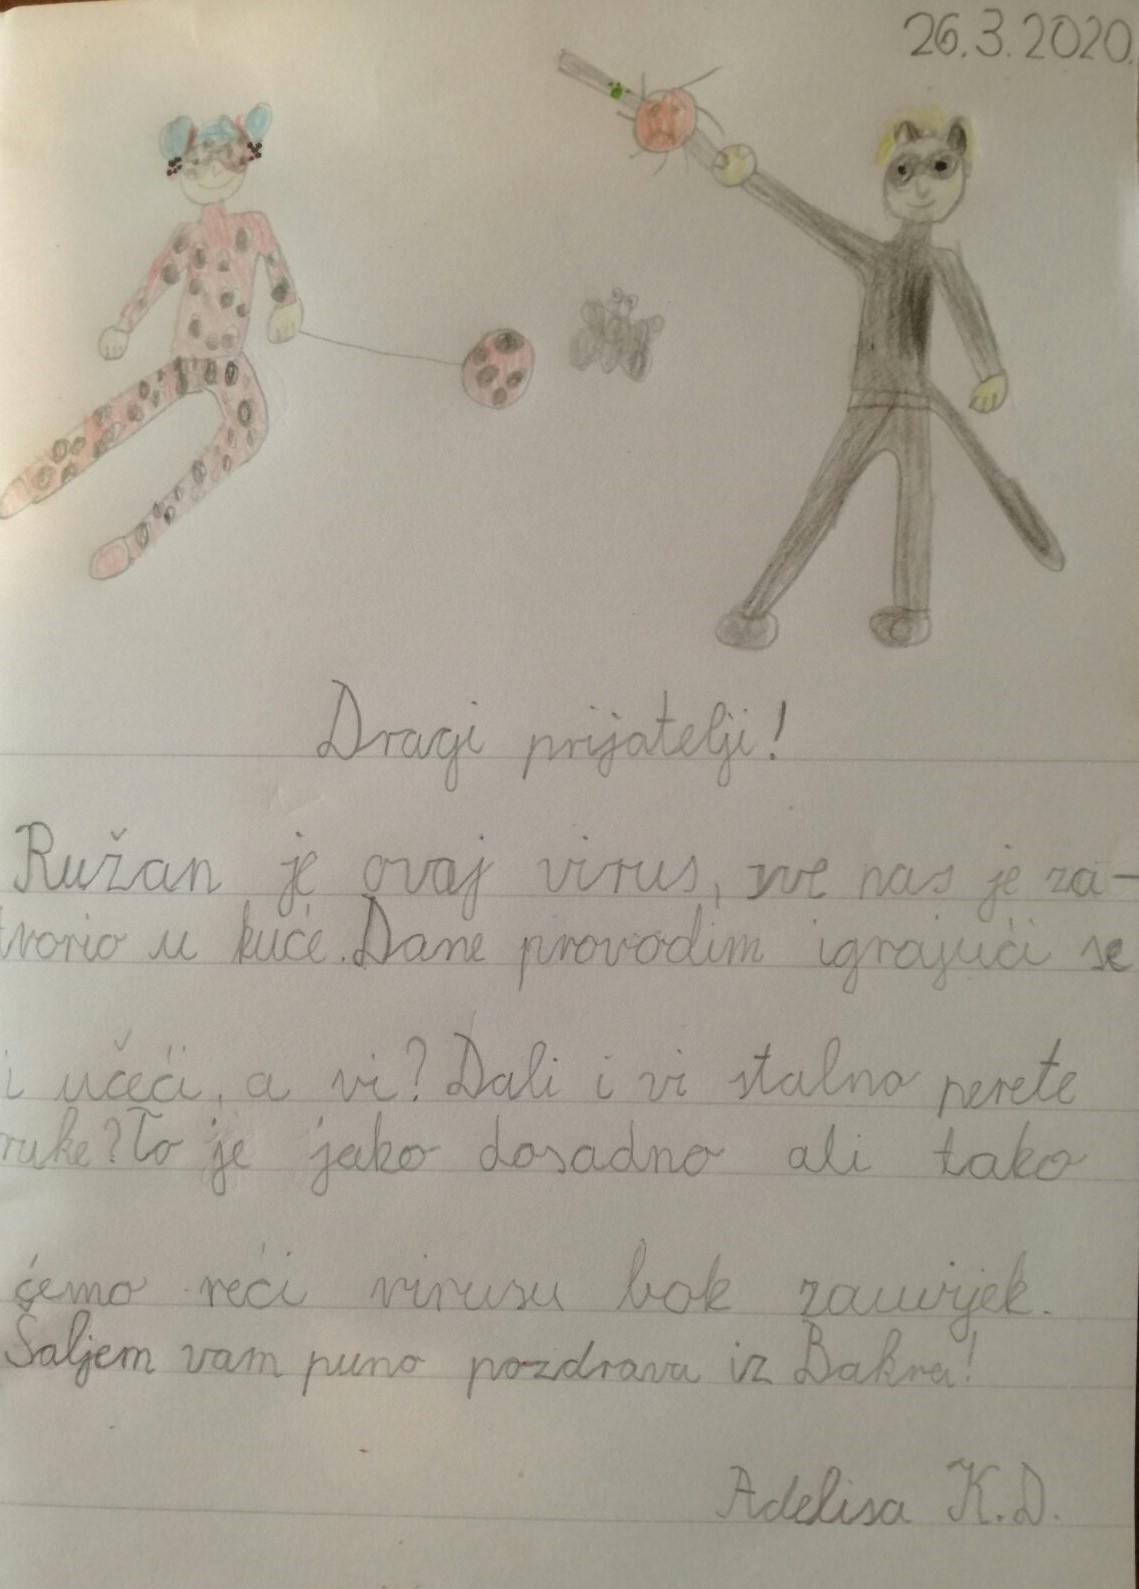 26.3.2020.
Dragi prijatelji!
Ružan je ovaj virus, sve nas je za-
tvorio u kuće. Dane provodim igrajući se
i učeći, a vi? Dali i vi stalno perete
ruke? To je jako dosadno ali tako
ćemo reći virusu bok zauvijek.
Šaljem vam puno pozdrava iz Bakra!
Adelisa K.D.